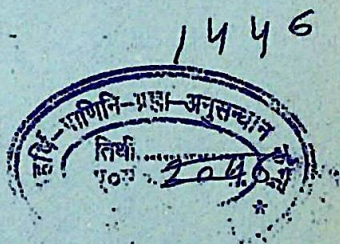 1446
महर्षि-पाणिनि-प्रज्ञा-अनुसन्धान
तिथी..............
2046